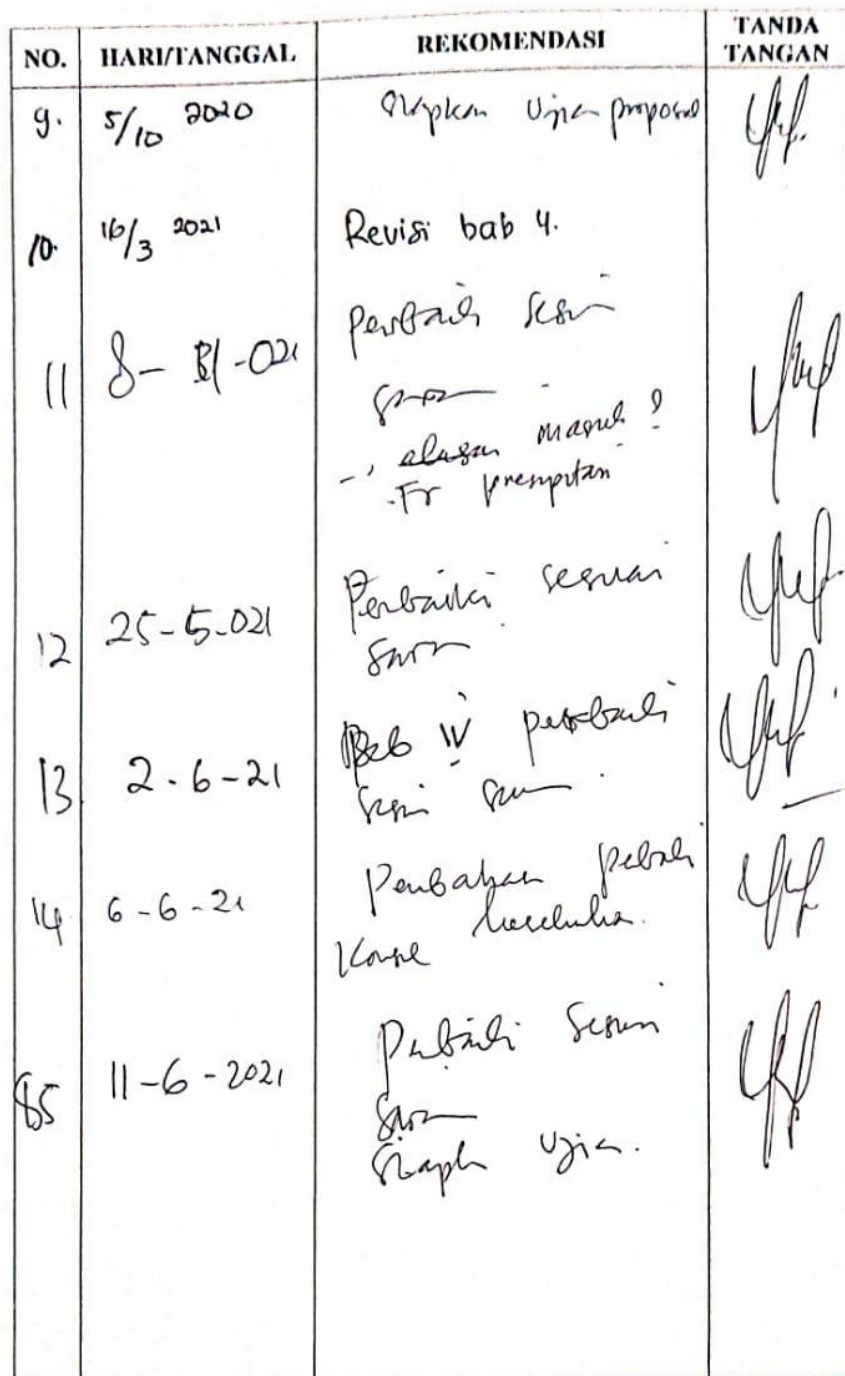 NO. HARI/TANGGAL REKOMENDASI TANDA TANGAN
9. 5/10 2020 Siapkan Ujian proposal
10. 16/3 2021 Revisi bab 4.
11 8- -021 Perbaiki sesuai
saran
-, alasan masuk ?
-Fr presipitasi
12 25-5-021 Perbaiki sesuai
saran
13 2-6-21 Bab IV perbaiki
sesuai saran.
14 6-6-21 Pembahasan
keseluruhan.
11-6-2021 Perbaiki sesuai
saran
Siapkan Ujian.